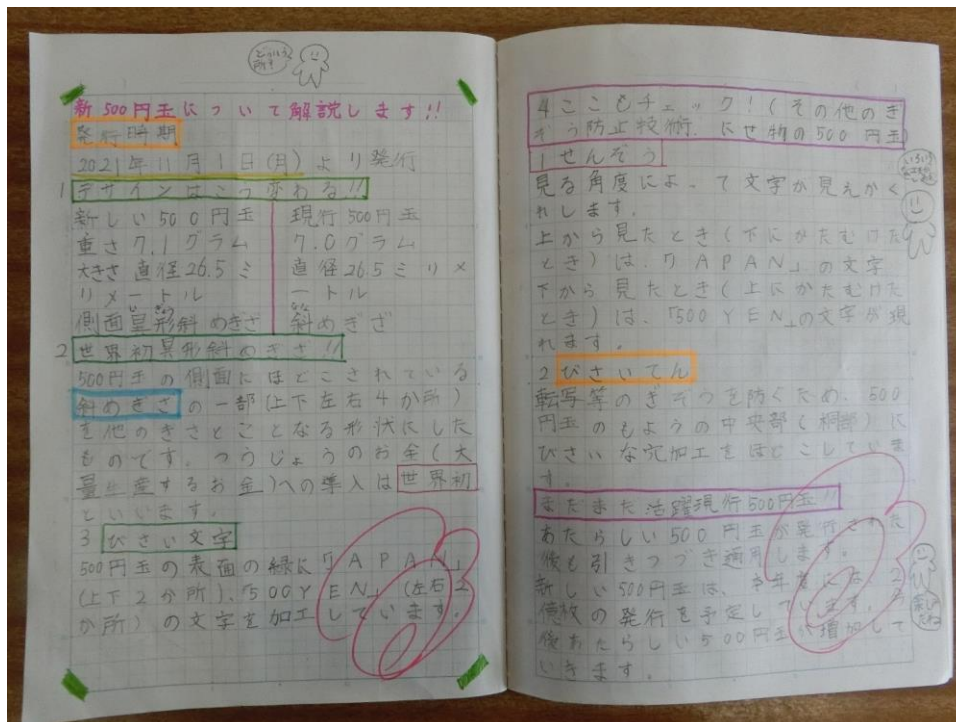 新500円玉について解説します!!
発行時期
2021年11月1日(月)より発行
1 デザインはこう変わる!!
新しい500円玉 現行500円玉
重さ7.1グラム 7.0グラム
大きさ直径26.5ミ 直径26.5ミリメ
リメートル ートル
側面異形斜めぎざ 斜めぎざ
2 世界初異形斜めぎざ!!
500円玉の側面にほどこされている
斜めぎざの一部(上下左右4か所)
を他のぎざとことなる形状にした
ものです。つうじょうのお金(大
量生産するお金)への導入は世界初
といいます。
3 びさい文字
500円玉の表面の縁に「JAPAN」
(上下2か所)、「500YEN」(左右2
か所)の文字を加工しています。
4ここもチェック!(その他のぎ
ぞう防止技術、にせ物の500円玉)
1せんぞう
見る角度によって文字が見えかく
れします。
上から見たとき(下にかたむけた
とき)は、「JAPAN」の文字
下から見たとき(上にかたむけた
とき)は、「500YEN」の文字が現
れます。
2 びさいてん
転写等のぎぞうを防ぐため、500
円玉のもようの中央部(桐部)に
びさいな穴加工をほどこしていま
す。
まだまだ活躍現行500円玉!!
あたらしい500円玉が発行された
後も引きつづき通用します。
新しい500円玉は、今年度には、2
億枚の発行を予定しています。
後あたらしい500円玉が増加して
いきます。